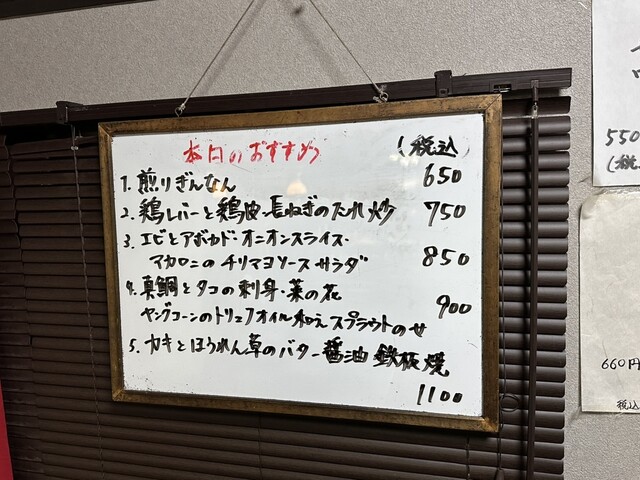 本日のおすすめ
(税込)
1. 煎りぎんなん 650
2. 鶏レバーと鶏皮・長ねぎのたれ炒 750
3. エビとアボカド・オニオンスライス・
マカロニのチリマヨソースサラダ 850
4. 真鯛とタコの刺身・菜の花
ヤングコーンのトリュフオイル和えスプラウトのせ 900
5. カキとほうれん草のバター醤油鉄板焼
1100
550
(税
660円
税込